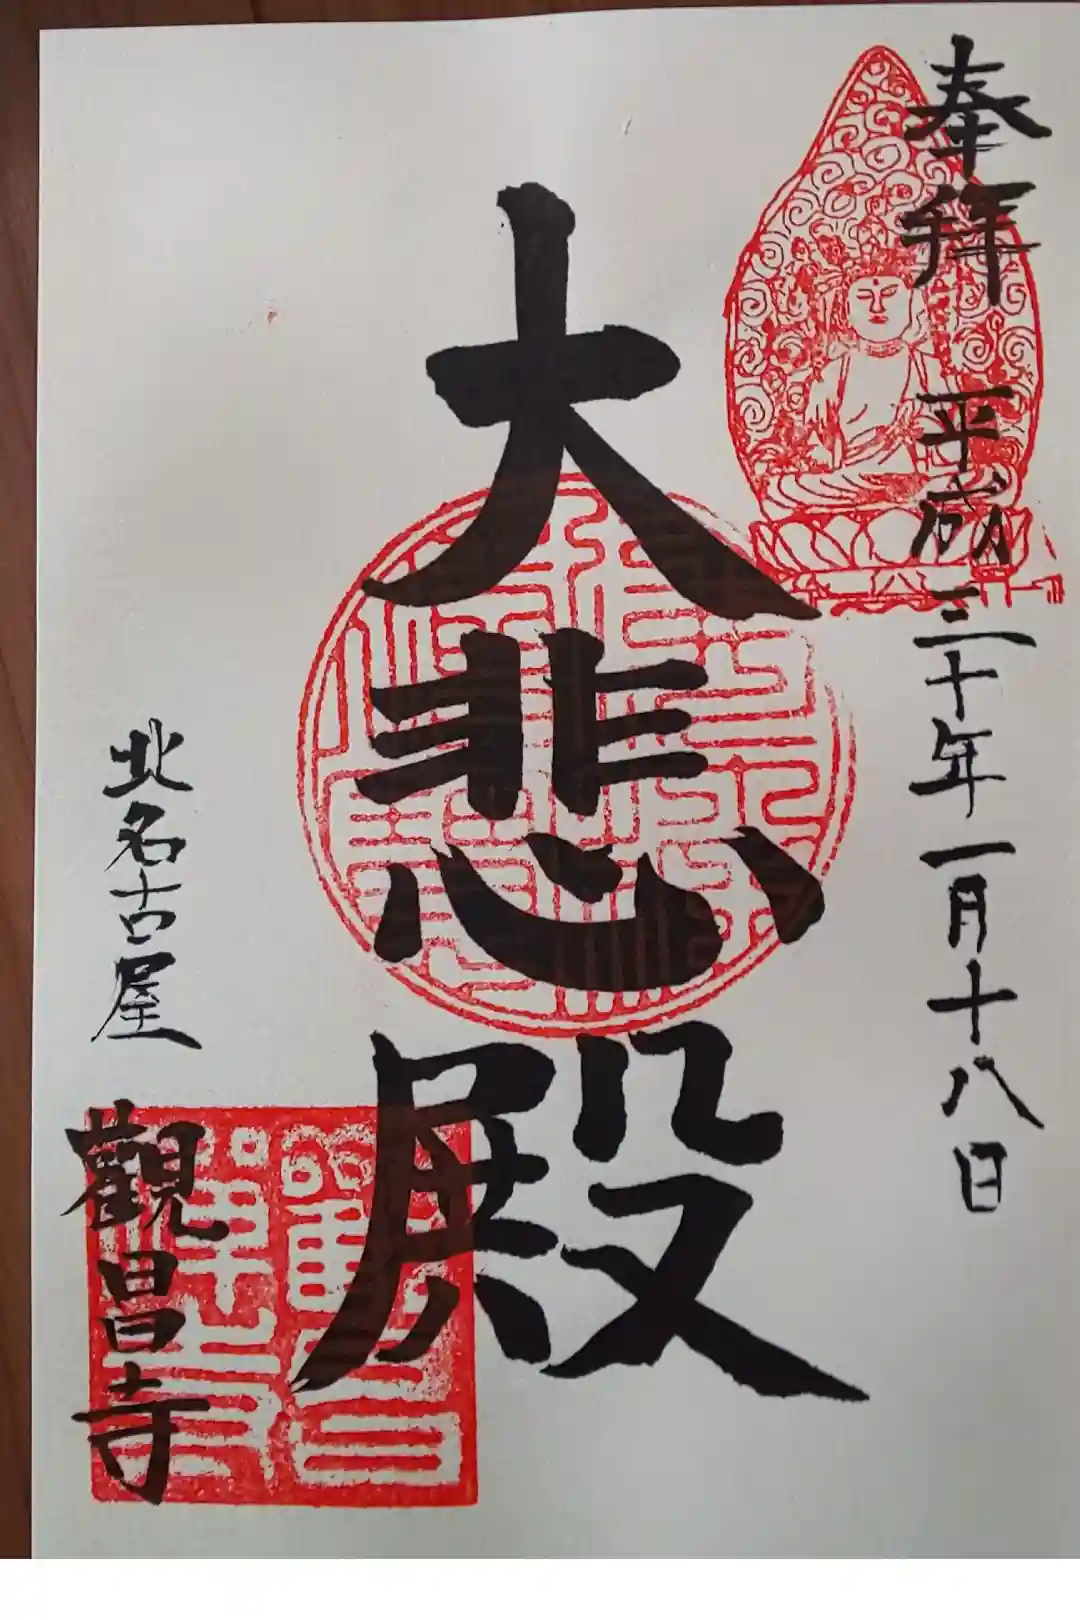 奉拝 平成三十年一月十八日
大悲殿
北名古屋 觀昌寺